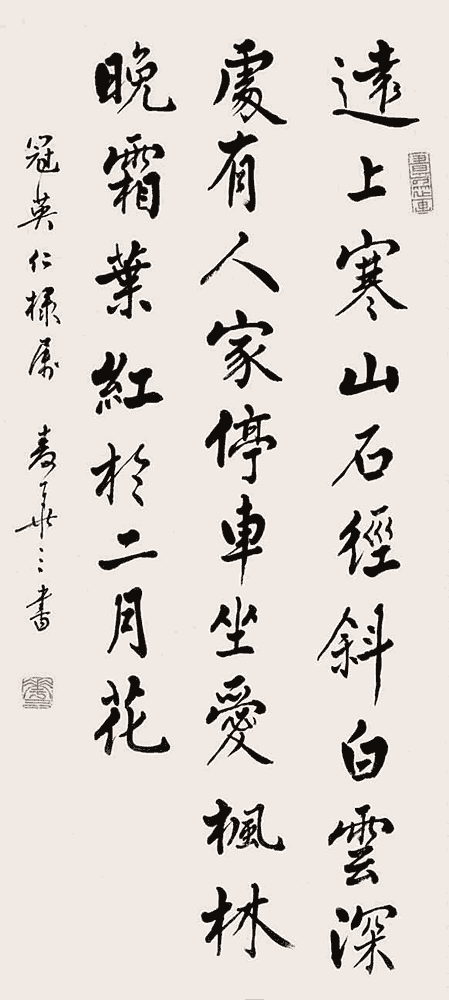 遠上寒山石徑斜白雲深
處有人家停車坐愛楓林
晚霜葉紅於二月花
冠英仁棣属 麦華三書